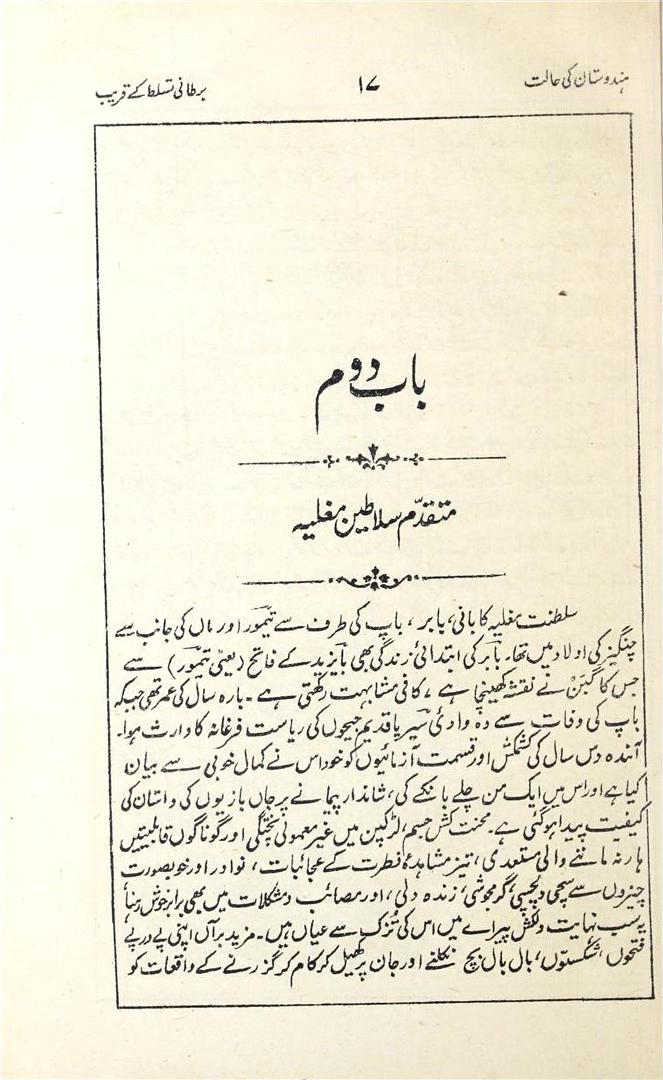 ہندوستان کی حالت
۱۷
برطانی تسلط کے قریب
باب دوم
متقدّم سلاطین مغلیہ
سلطنت مغلیہ کا بانی، بابر، باپ کی طرف سے تیمور اور ماں کی جانب سے
چنگیز کی اولاد میں تھا۔ بابر کی ابتدائی زندگی بھی بایزید کے فاتح (یعنی تیمور) سے
جس کا گبن نے نقشہ کھینچا ہے، کافی مشابہت رکھتی ہے۔ بارہ سال کی عمر تھی جبکہ
باپ کی وفات سے وہ وادیٔ سیر یا قدیم جیحوں کی ریاست فرغانہ کا وارث ہوا۔
آئندہ دس سال کی کشمکش اور قسمت آزمائیوں کو خود اس نے کمال خوبی سے بیان
کیا ہے اور اس میں ایک من چلے بانکے کی، شاندار پیمانے پر جاں بازیوں کی داستان کی
کیفیت پیدا ہو گئی ہے۔ محنت کش جسم، لڑکپن میں غیر معمولی پختگی اور گوناگوں قابلیتیں
ہار نہ ماننے والی مستعدی، تیز مشاہدہ، فطرت کے عجائبات، نوادر اور خوبصورت
چیزوں سے سچی دلچسپی، گرمجوشی، زندہ دلی، اور مصائب و مشکلات میں بھی برابر خوش رہنا
یہ سب نہایت دلکش پیرائے میں اس کی تُزک سے عیاں ہیں۔ مزید برآں اپنی پے در پے
فتحوں، شکستوں، بال بال بچ نکلنے اور جان پر کھیل کر کام کر گزرنے کے واقعات کو